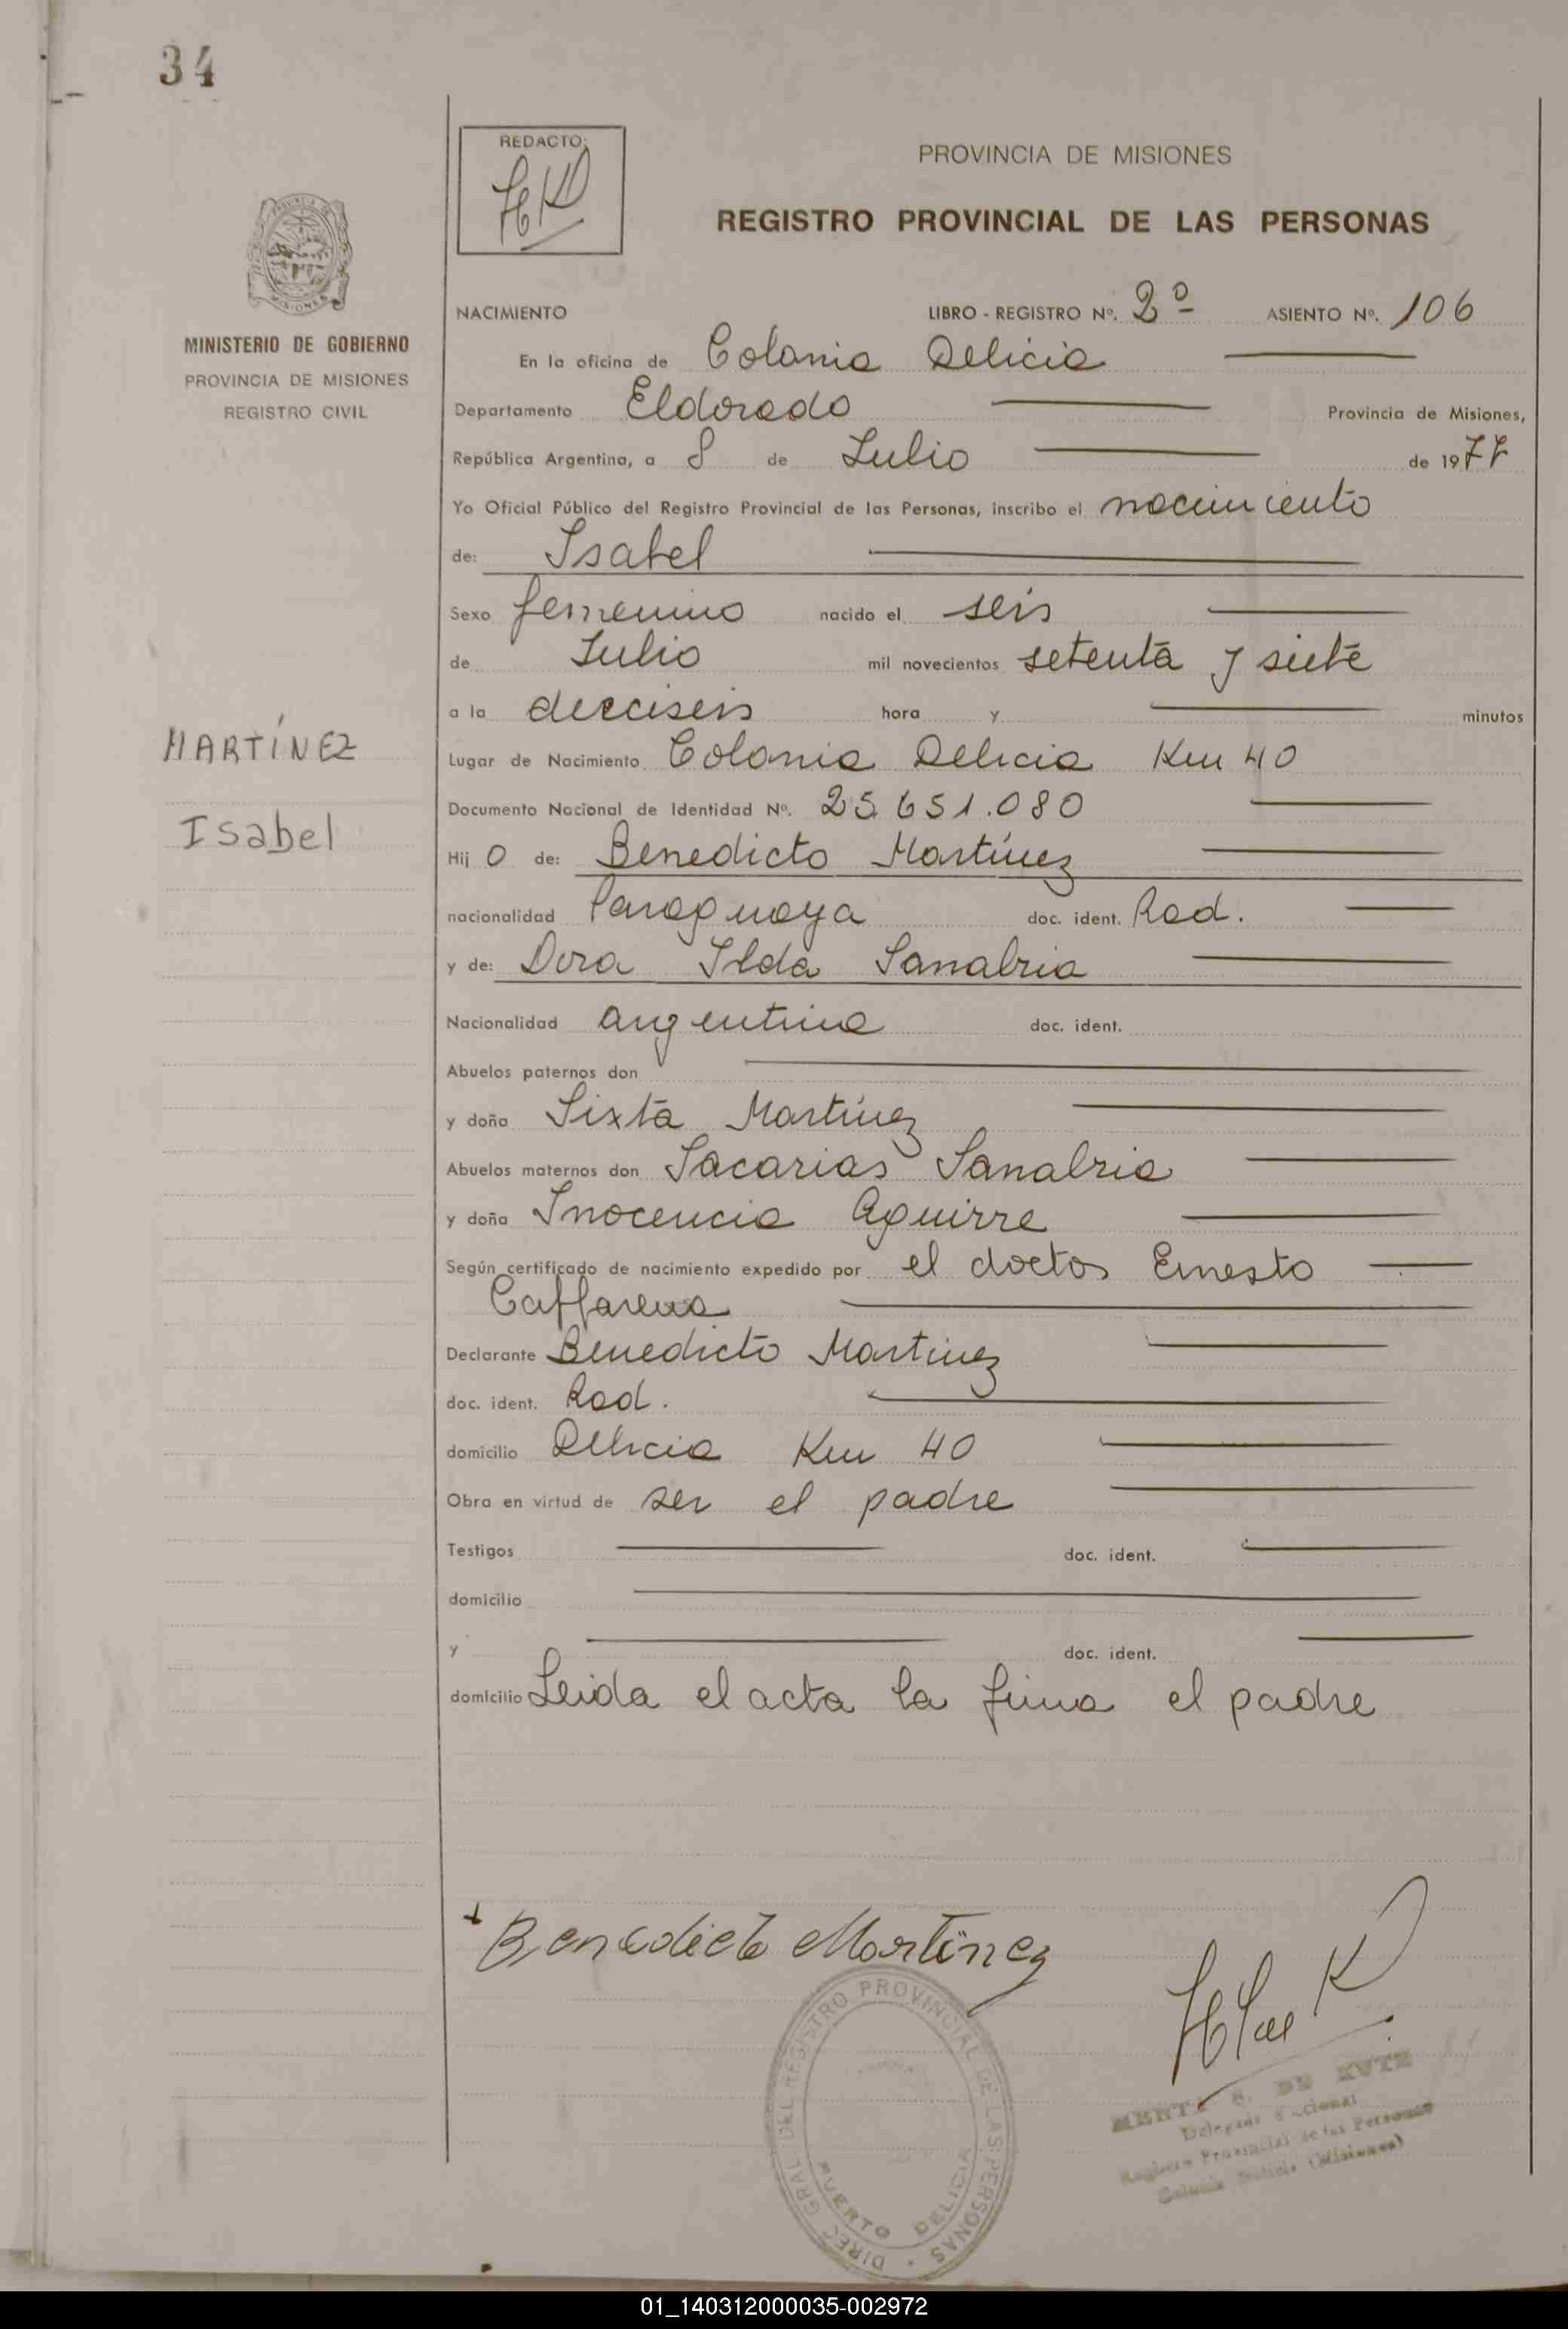 34
REDACTO:
PROVINCIA DE MISIONES
REGISTRO PROVINCIAL DE LAS PERSONAS
MINISTERIO DE GOBIERNO
PROVINCIA DE MISIONES
REGISTRO CIVIL
NACIMIENTO LIBRO - REGISTRO Nº. 2º ASIENTO Nº. 106
En la oficina de Colonia Delicia
Departamento Eldorado Provincia de Misiones,
República Argentina, a 8 de Julio de 1977
Yo Oficial Público del Registro Provincial de las Personas, inscribo el nacimiento
de: Isabel
Sexo femenino nacido el seis
de Julio mil novecientos setenta y siete
a la dieciseis hora y minutos
MARTÍNEZ
Isabel
Lugar de Nacimiento Colonia Delicia Km 40
Documento Nacional de Identidad Nº. 25.651.080
Hij O de: Benedicto Martínez
nacionalidad Paraguaya doc. ident. Rad.
y de: Dora Ilda Sanabria
Nacionalidad argentina doc. ident.
Abuelos paternos don
y doña Sixta Martínez
Abuelos maternos don Sacarias Sanabria
y doña Inocencia Aguirre
Según certificado de nacimiento expedido por el doctor Ernesto
Caffarena
Declarante Benedicto Martinez
doc. ident. Rad.
domicilio Delicia Km 40
Obra en virtud de ser el padre
Testigos doc. ident.
domicilio
y doc. ident.
domicilio Leida el acta la firma el padre
Benedicto Martínez
DIREC GRAL DEL REGISTRO PROVINCIAL DE LAS PERSONAS
PUERTO DELICIA
DE KUTZ
Provincial de las Personas
(Misiones)
01_140312000035-002972